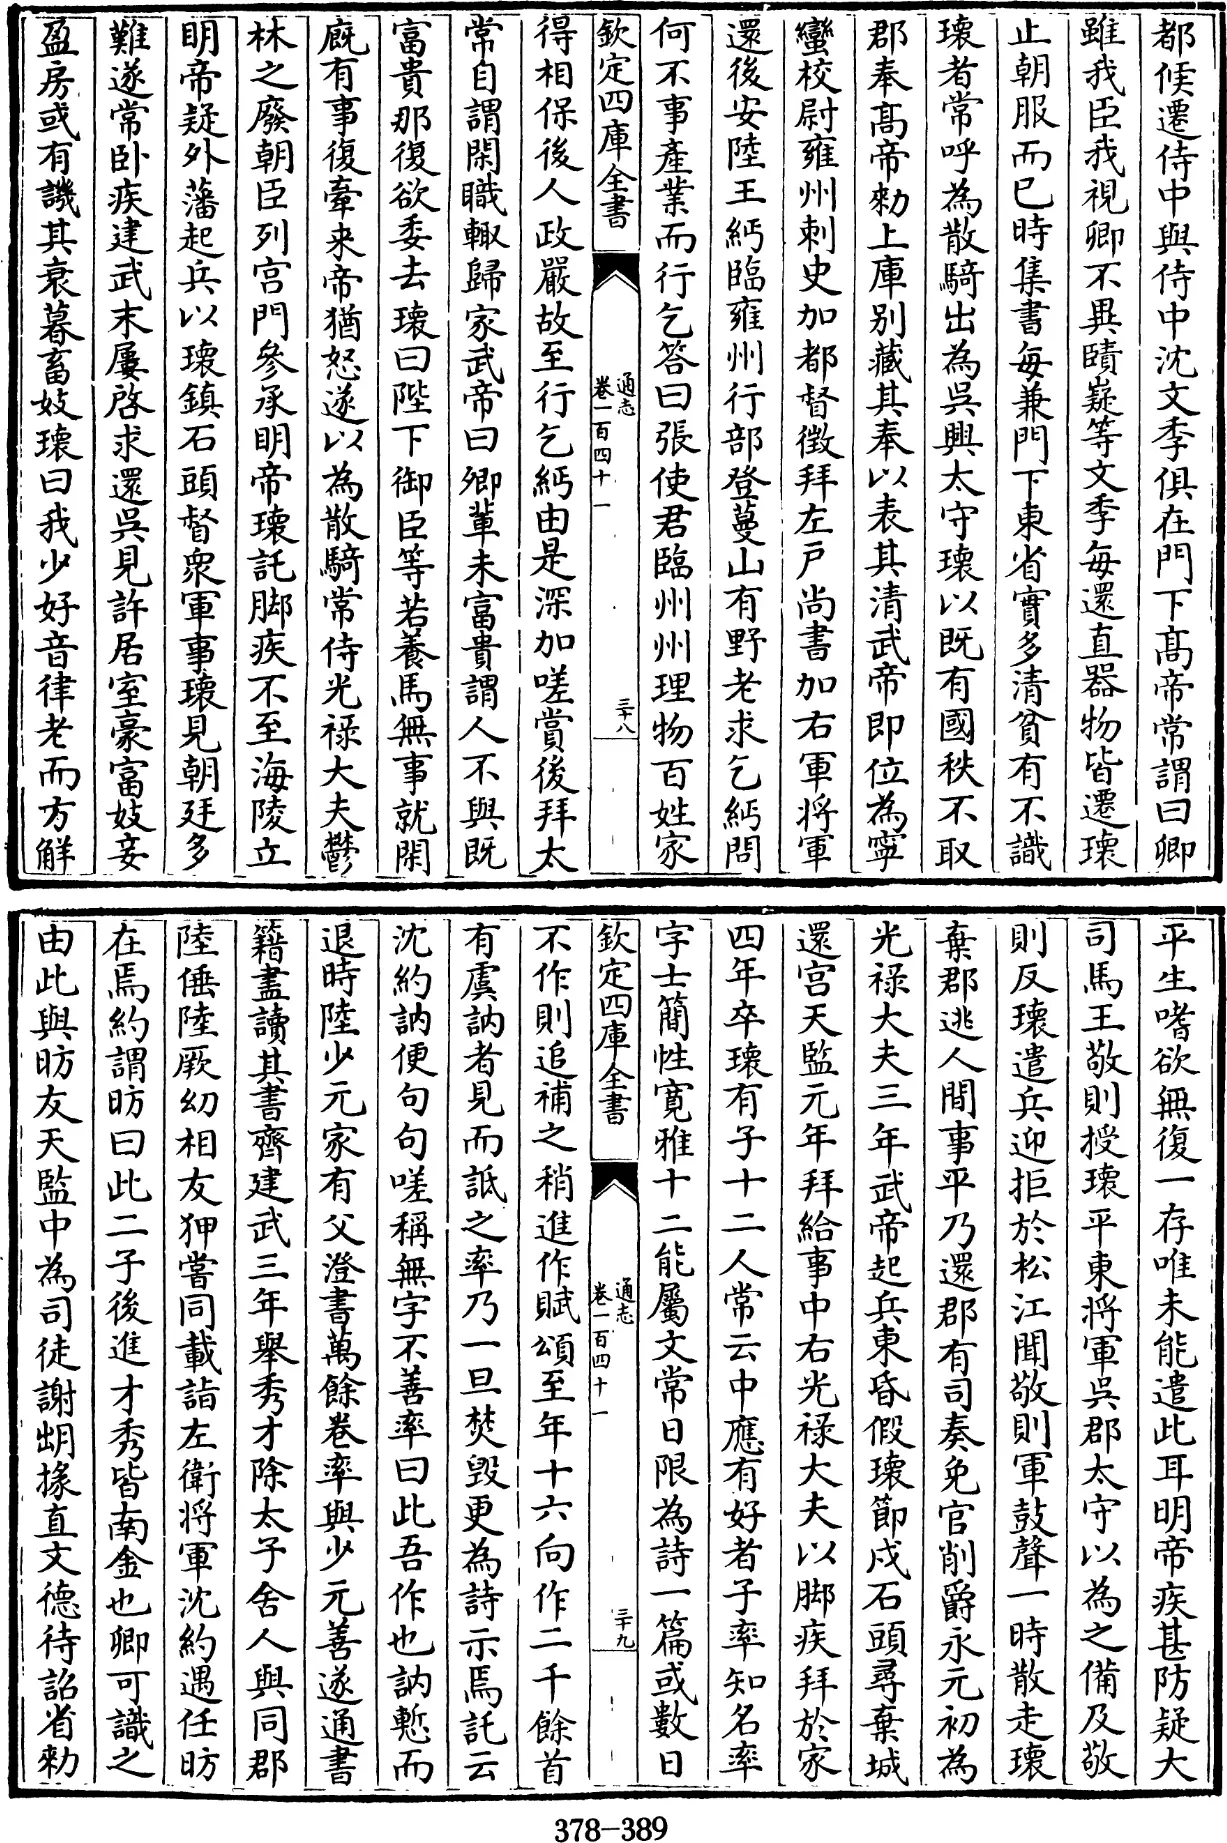 都候遷侍中與侍中沈文季俱在門下髙帝常謂曰卿
雖我臣我視卿不異賾嶷等文季每還直器物皆遷瓌
止朝服而已時集書每兼門下東省實多清貧有不識
瓌者常呼為散騎出為吳興太守瓌以既有國秩不取
郡奉髙帝勑上庫别藏其奉以表其清武帝即位為寧
蠻校尉雍州刺史加都督徴拜左戸尚書加右軍将軍
還後安陸王緬臨雍州行部登蔓山有野老求乞緬問
何不事產業而行乞答曰張使君臨州州理物百姓家
欽定四庫全書
通志
卷一百四十一
三十八
得相保後人政嚴故至行乞緬由是深加嗟賞後拜太
常自謂閑職輙歸家武帝曰卿輩未富貴謂人不與既
富貴那復欲委去瓌曰陛下御臣等若養馬無事就閑
廐有事復牽来帝猶怒遂以為散騎常侍光禄大夫鬱
林之廢朝臣列宮門參承明帝瓌託脚疾不至海陵立
明帝疑外藩起兵以瓌鎮石頭督衆軍事瓌見朝廷多
難遂常卧疾建武末屢啓求還吳見許居室豪富妓妾
盈房或有譏其衰暮畜妓瓌曰我少好音律老而方解
平生嗜欲無復一存唯未能遣此耳明帝疾甚防疑大
司馬王敬則授瓌平東将軍吳郡太守以為之備及敬
則反瓌遣兵迎拒於松江聞敬則軍鼓聲一時散走瓌
棄郡逃人間事平乃還郡有司奏免官削爵永元初為
光禄大夫三年武帝起兵東昏假瓌節戍石頭尋棄城
還宫天監元年拜給事中右光禄大夫以脚疾拜於家
四年卒瓌有子十二人常云中應有好者子率知名率
字士簡性寛雅十二能屬文常日限為詩一篇或數日
欽定四庫全書
通志
卷一百四十一
三十九
不作則追補之稍進作賦頌至年十六向作二千餘首
有虞訥者見而詆之率乃一旦焚毁更為詩示焉託云
沈約訥便句句嗟稱無字不善率曰此吾作也訥慙而
退時陸少元家有父澄書萬餘卷率與少元善遂通書
籍盡讀其書齊建武三年舉秀才除太子舍人與同郡
陸倕陸厥幼相友狎嘗同載詣左衛将軍沈約遇任昉
在焉約謂昉曰此二子後進才秀皆南金也卿可識之
由此與昉友天監中為司徒謝朏掾直文德待詔省勑
378-389